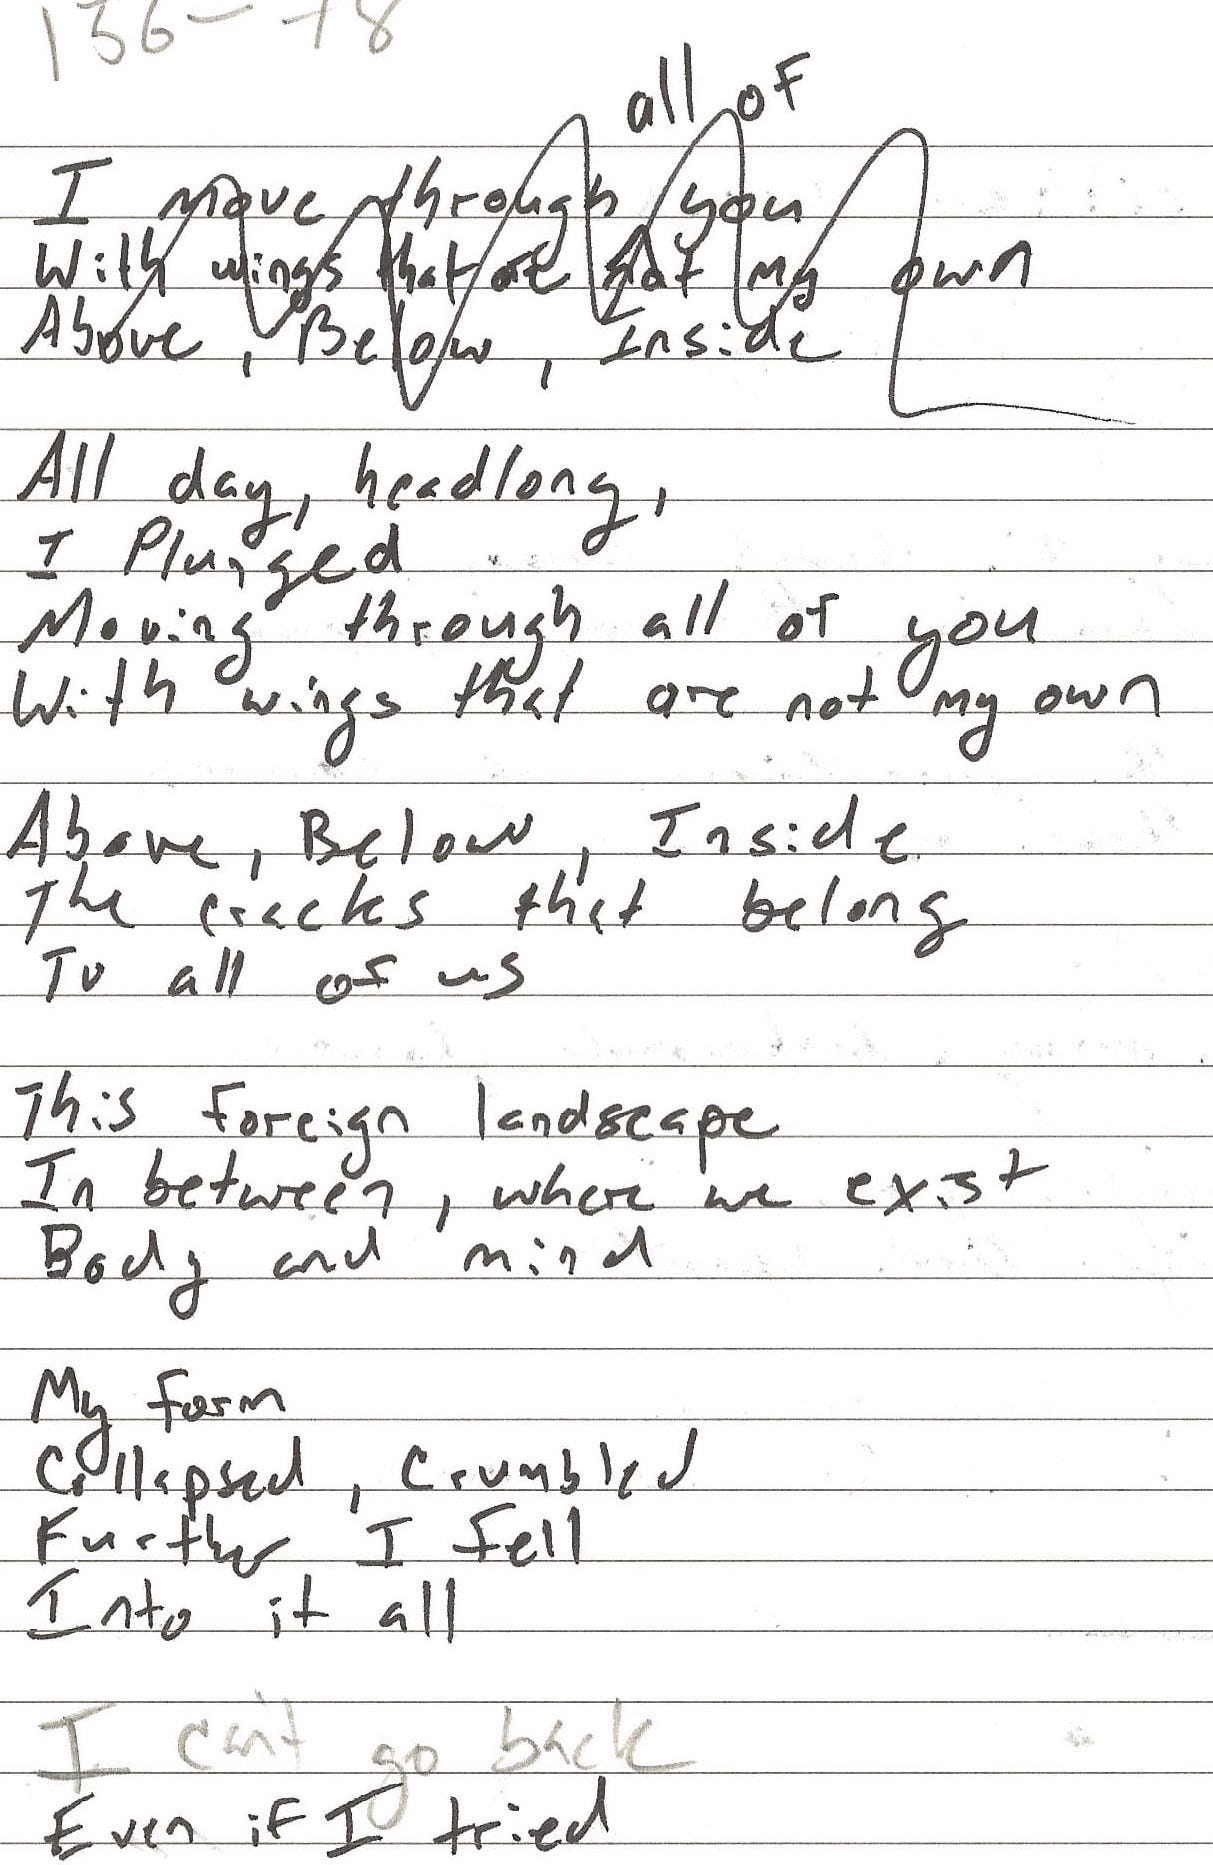 all of
I move through you
With wings that are not my own
Above, Below, Inside
All day, headlong,
I Plunged
Moving through all of you
With wings that are not my own
Above, Below, Inside
The cracks that belong
To all of us
This foreign landscape
In between, where we exist
Body and mind
My form
Collapsed, Crumbled
Further I fell
Into it all
I can't go back
Even if I tried